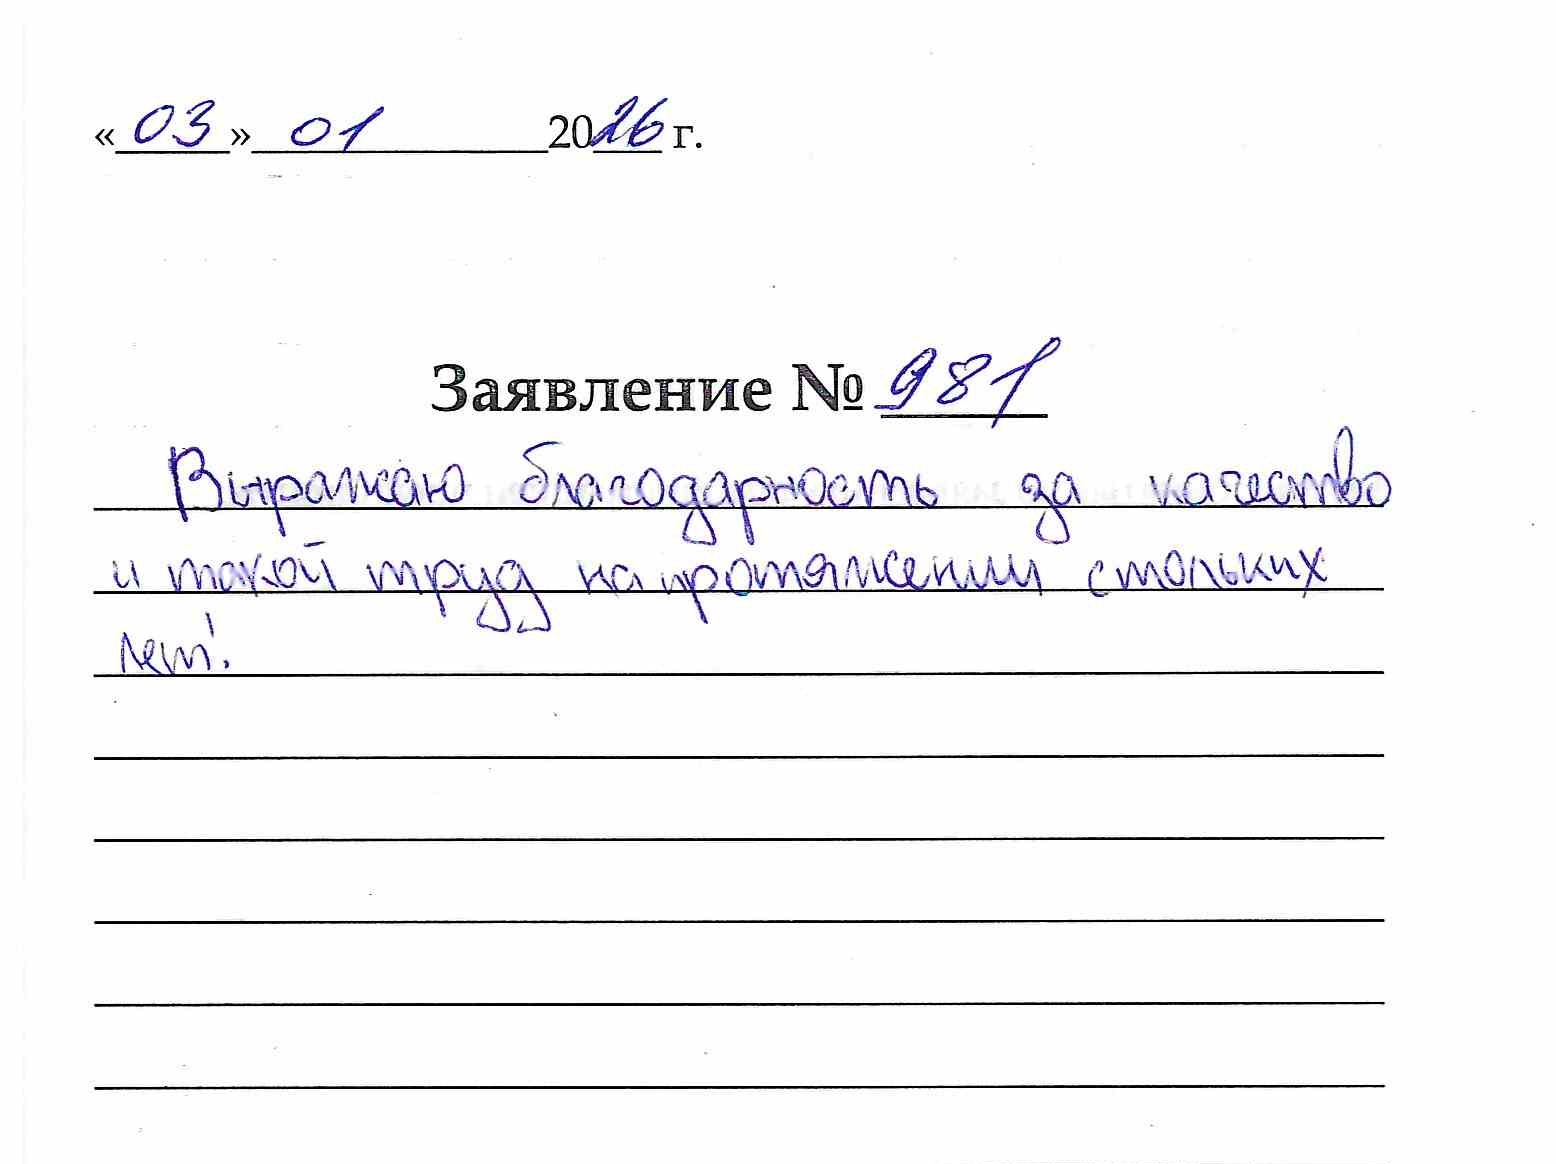 «03» 01 2026 г.
Заявление № 981
Выражаю благодарность за качество
и такой труд на протяжении стольких
лет!